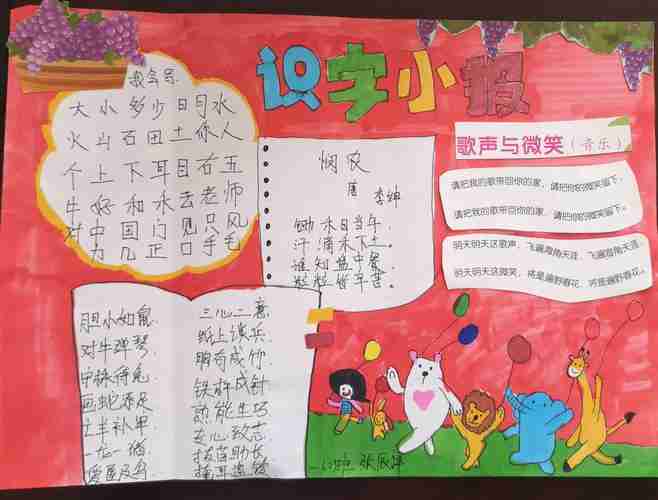 识字小报
我会写
大小多少日月水
火山石田土你人
个上下耳目右五
牛好和水去老师
对中国门见只风
力几正口手毛
悯农
唐 李绅
锄禾日当午
汗滴禾下土
谁知盘中餐
粒粒皆辛苦。
歌声与微笑(音乐)
请把我的歌带回你的家,请把你的微笑留下。
请把我的歌带回你的家,请把你的微笑留下。
明天明天这歌声,飞遍海角天涯,飞遍海角天涯。
明天明天这微笑,将是遍野春花,将是遍野春花。
胆小如鼠
对牛弹琴
守株待兔
画蛇添足
亡羊补牢
三心二意
纸上谈兵
胸有成竹
铁杵成针
熟能生巧
专心致志
拔苗助长
掩耳盗铃